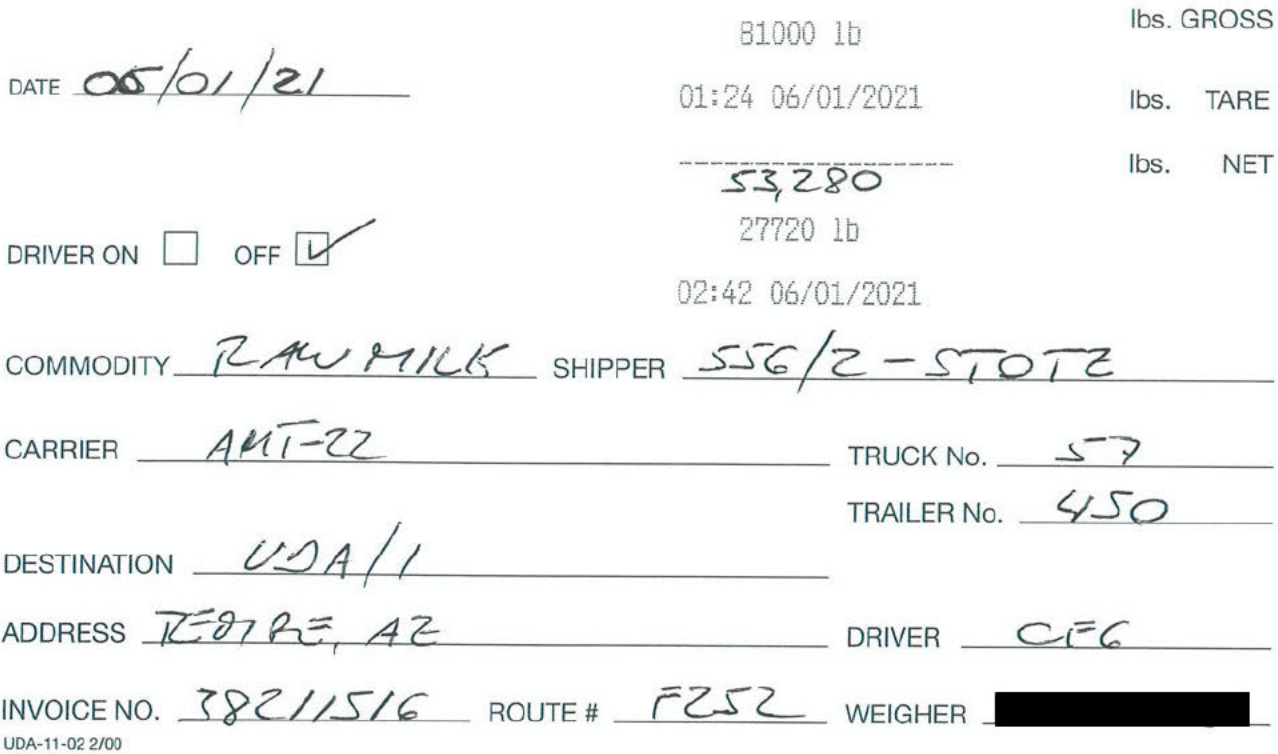 81000 lb lbs. GROSS
DATE 06/01/21 01:24 06/01/2021 lbs. TARE
------------------ lbs. NET
53,280
DRIVER ON OFF 27720 lb
02:42 06/01/2021
COMMODITY RAW MILK SHIPPER 556/2-STOTZ
CARRIER AMT-22 TRUCK No. 57
TRAILER No. 450
DESTINATION UDA/1
ADDRESS AZ DRIVER
INVOICE NO. 38211516 ROUTE # F252 WEIGHER
UDA-11-02 2/00